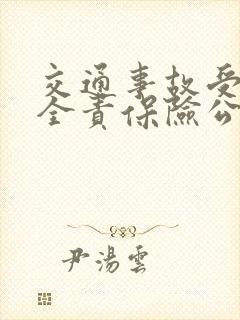 交通事故受
全責保險公
尹湯雲